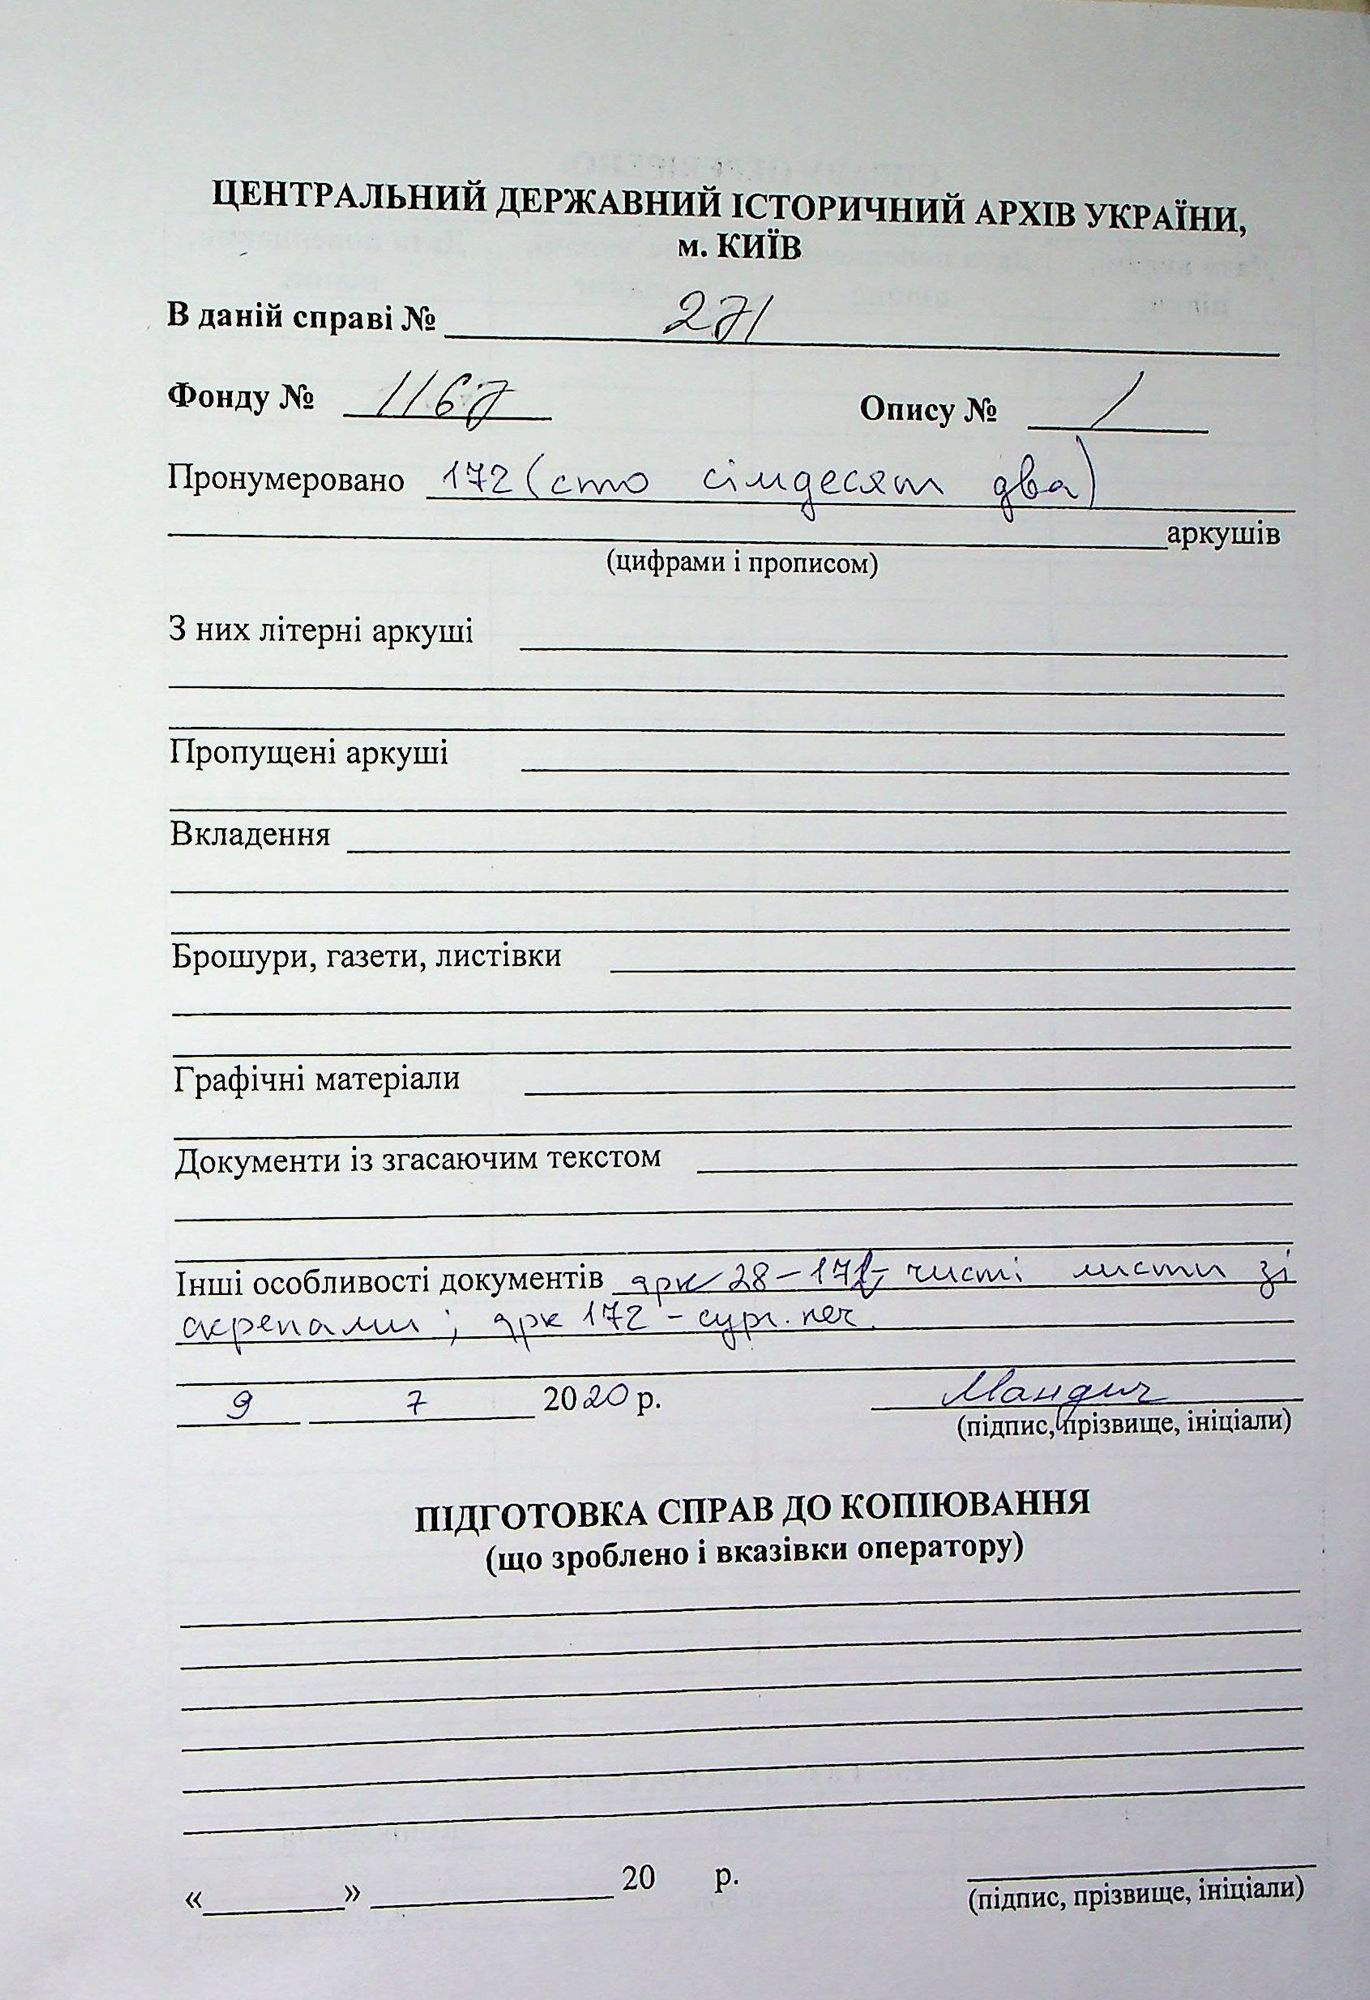 ЦЕНТРАЛЬНИЙ ДЕРЖАВНИЙ ІСТОРИЧНИЙ АРХІВ УКРАЇНИ,
м. КИЇВ
В даній справі № 271
Фонду № 1167 Опису № 1
Пронумеровано 172 (сто сімдесят два)
аркушів
(цифрами і прописом)
З них літерні аркуші
Пропущені аркуші
Вкладення
Брошури, газети, листівки
Графічні матеріали
Документи із згасаючим текстом
Інші особливості документів арк 28-171, чисті листи зі
скрепами; арк 172 - сург. печ.
9 7 2020 р. Мандич
(підпис, прізвище, ініціали)
ПІДГОТОВКА СПРАВ ДО КОПІЮВАННЯ
(що зроблено і вказівки оператору)
«________» ______________ 20 р.
(підпис, прізвище, ініціали)